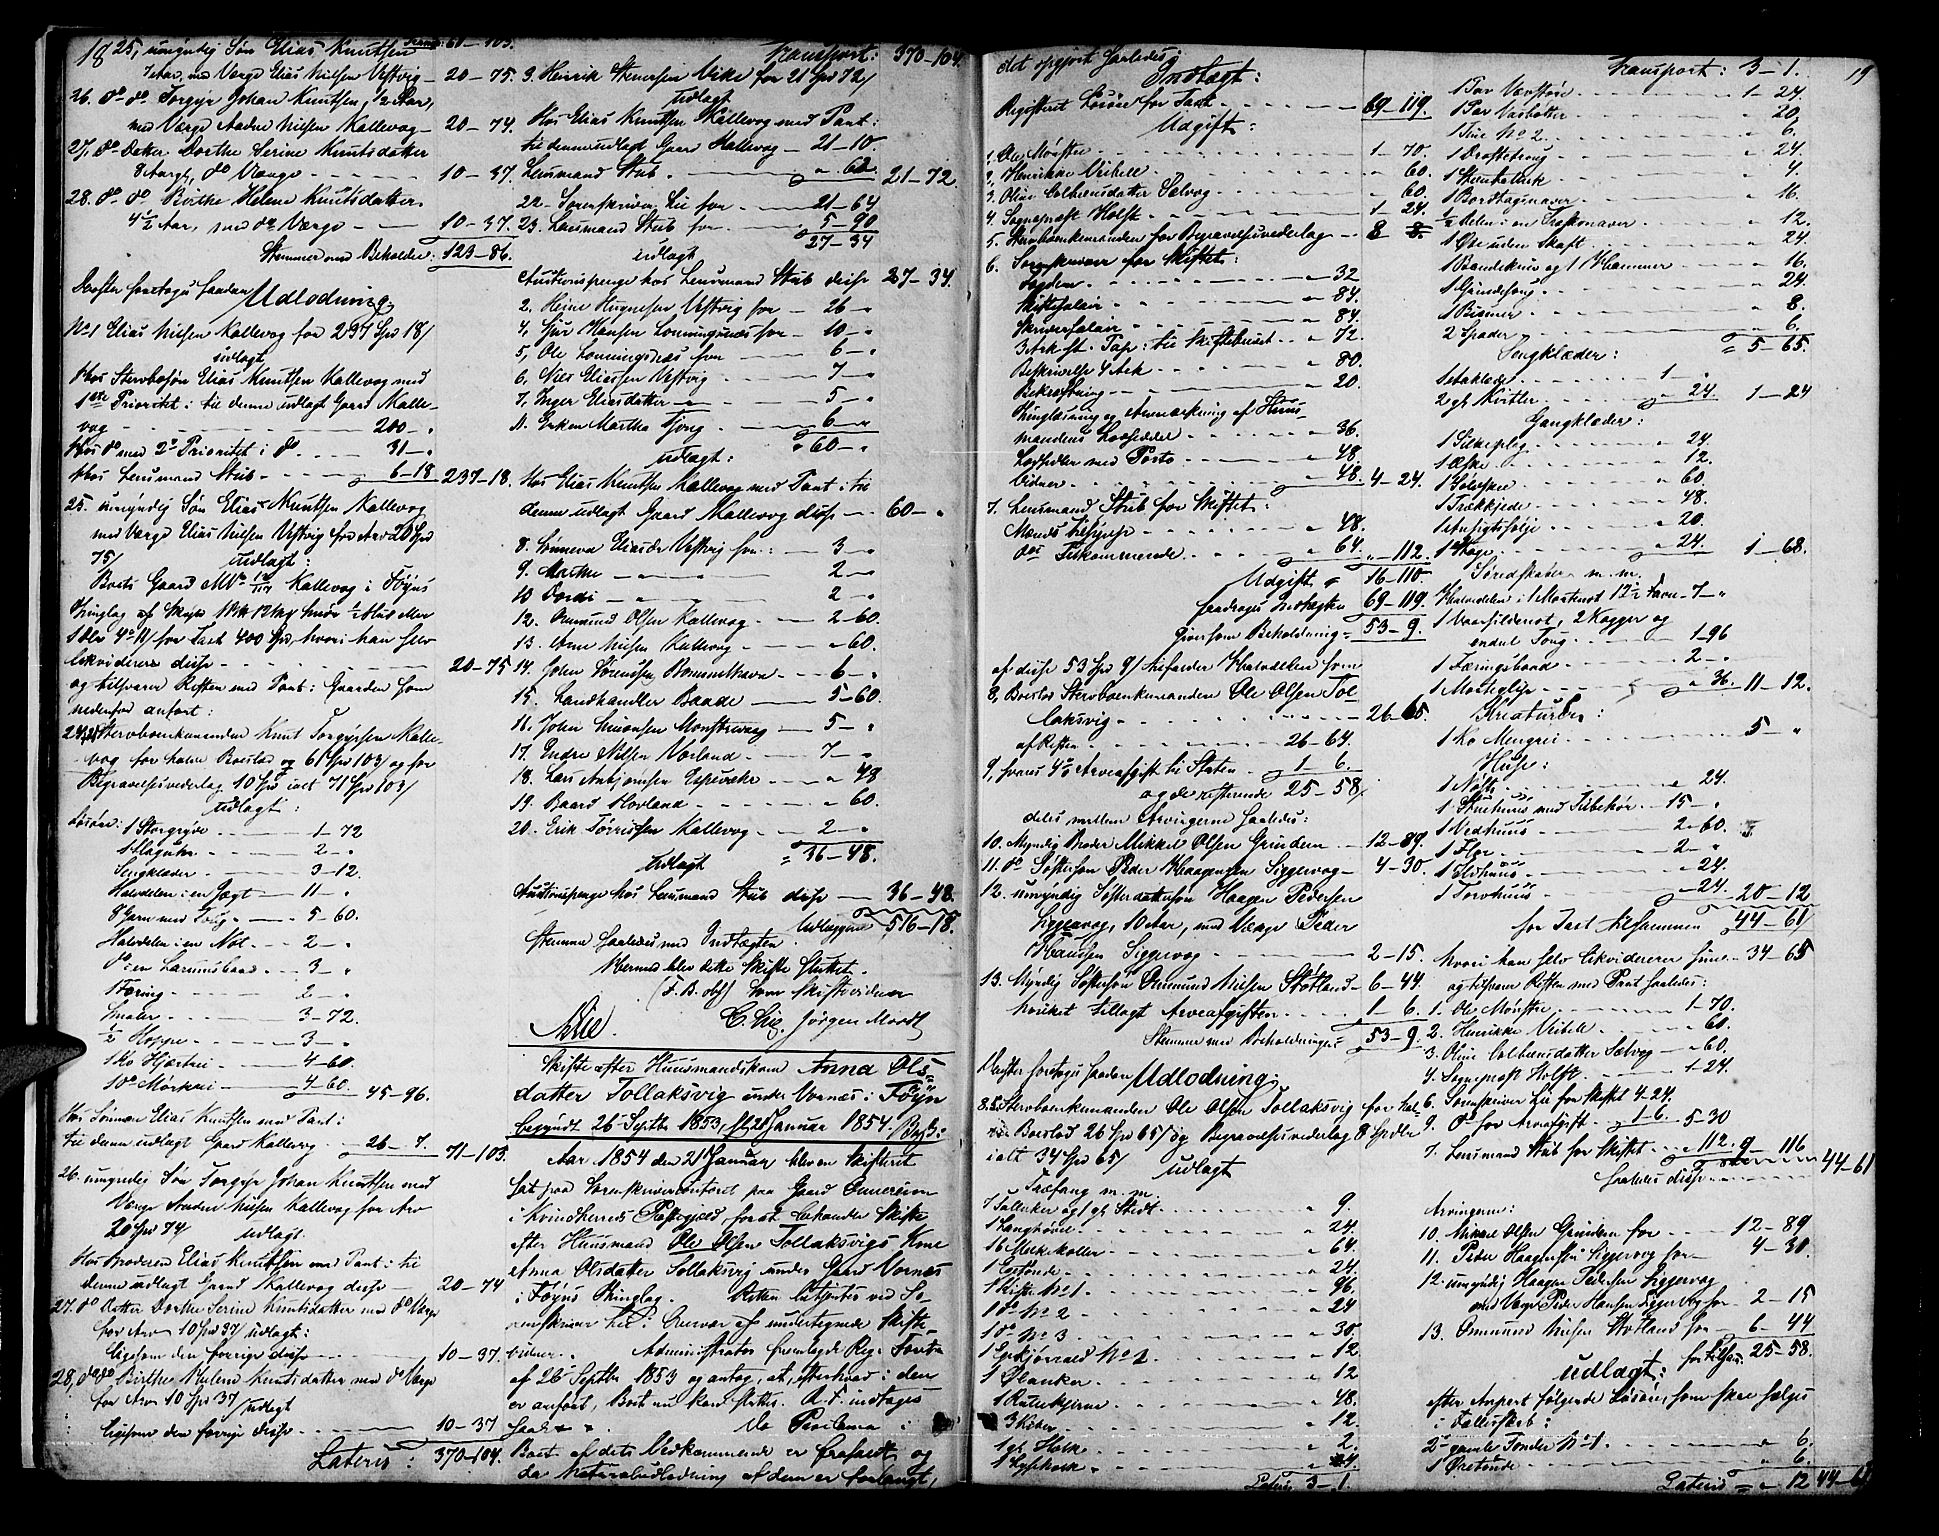 18
25, umyndig Søn Elias Knutsen Transp: 61-103.
7 Aar, med Værge Elias Nilsen Vestvig - 20-75.
26. do do Torgeir Johan Knutsen, 1/2 Aar,
med Værge Anders Nilsen Kallevog - 20-74.
27, do Datter Dorthe Serine Knutsdatter
do Værge - 10-37.
28. do do Birthe Helene Knutsdatter
4 1/2 Aar, med do Værge - 10-37.
Stemmer med Beholdn: 123-86.
Derefter foretoges saadan Udlodning
No 1 Elias Nilsen Kallevog for 237 Spd 18/
udlagt
Hos Sterbosøn Elias Knutsen Kallevog med
1ste Prioritet i til denne udlagt Gaard Kalle-
vog - 200-"
Hos do med 2 Prioritet i do - 31-"
Hos Lensmand Stub - 6-18 237-18.
25. umyndig Søn Elias Knutsen Kallevog
med Værge Elias Nilsen Vestvig for Arv 20 Spd
75/ udlagt:
Boets Gaard MNo Kallevog i Føyns
Thinglag af Skyld
for Taxt 400 Spd, hvori han selv
likviderer disse - 20-75
og tilsvarer Resten med Pant: Gaarden som
nedenfor anført:
Sterboenkemanden Knut Torgersen Kalle-
vog for halve Boeslod og 61 Spd 103/ og for
Begravelsesvederlag 10 Spd ialt 71 Spd 103/
udlagt:
Løsøre: 1 Storgryde - 1-72
1 Slaguhr - 2-"
Sengklæder - 3-12.
Halvdelen i en Jagt - 11-"
Garn med Toug - 5-60.
Halvdelen i en Not - 2-"
do i en Baad - 3-"
1 Færing - 2-"
- 3-72.
1/2 Hoppe - 3-"
1 Ko Hjærtrei - 4-60.
1 do Morkrei - 4-60. 45-96.
Hos Sønnen Elias Knutsen med Pant:
til denne udlagt Gaard Kallevog - 26-7. 71-103.
26. umyndig Søn Torgeir Johan Knutsen med
Værge Anders Nilsen Kallevog for Arv
20 Spd 74 udlagt.
Hos Broderen Elias Knutsen med Pant: til
denne udlagt Gaard Kallevog disse - 20-74
27. do Datter Dorthe Serine Knutsdatter med do Værge
for Arv 10 Spd 37/ udlagt:
ligesom den forrige disse - 10-37.
28, do do Birthe Helene Knutsdatter med do Værge
for Arv 10 Spd 37/ udlagt
ligesom den forrige disse - 10-37
Lateris: 370-104.
Transport: 370-104.
3. Henrik Stenersen Vike for 21 Spd 72/
udlagt
Hos Elias Knutsen Kallevog med Pant:
til denne udlagt Gaard Kallevog - 21-10.
Lensmand Stub - " 62. 21-72.
22 Sorenskriver Lie for - 21-64
23. Lensmand Stub for - 5-90
27-34
udlagt
Auctionspenge hos Lensmand Stub disse 27-34.
2. Heine Vestvig for - 26-"
4. Sjur Hansen Lonningsnæs for - 10-"
5, Ole Lonningsnæs for - 6-"
6, Niels Eliassen Vestvig - 7-"
7, Inger Eliasdatter - 5-"
Enken Martha Fjong - 6-"
60-"
udlagt:
Hos Elias Knutsen Kallevog med Pant i til
denne udlagt Gaard Kallevog disse - 60-"
8. Sønneva Eliasdr Vestvig for: - 3-"
9. Marthe - 2-"
10 Dordi - 2-"
12. Osmund Olsen Kallevog - 2-60.
13. Arne Nilsen Kallevog - "60.
14. John Simonsen Bommelhavn - 6-"
15. Landhandler Baade - 5-60.
John Simonsen - 5-"
17. Endre Nilsen Vorland - 7-"
18. Lars Espevike - " 48
19. Baard Hovland - " 60.
20. Erik Tørrissen Kallevog - 2-"
36-48.
udlagt
Auctionspenge hos Lensmand Stub disse - 36-48.
Udlæggene 516-18.
Stemmer saaledes med Indtægten
Hermed blev dette Skifte Sluttet.
som Skiftevidner
NLie. Jørgen Mordt
Skifte efter Huusmandskone Anna Ols-
datter Tollaksvig under Vornæs i Føyn
begyndt 26 Septbr 1853, sl. 21 Januar 1854.
Aar 1854 den 21 Januar blev en Skifteret
sat paa Sorenskrivercontoret paa Gaard Omvikeim
i Kvindherreds Præstegjæld, for at behandle Skifte
efter Huusmand Ole Olsen Tollaksvigs Kone
Anna Olsdatter Tollaksvig under Gaard Vornæs
i Føyns Thinglag. Retten betjentes ved So-
renskriver Lie i Overvær af undertegnede Skifte-
vidner. Administrator fremlagde Reg: Forr:
af 26 Septbr 1853 og antog, at, efterhvad i den
er anført, Boet nu kan sluttes. R. F. indtages
saal
Boet af dets Vedkommende er fraflyttet og
da Naturaludlodning af dem er forlangt,
19
det opgjort saaledes:
Indtægt:
Registeret Løsøre for Taxt - 69-119.
Udgift:
1. Ole Mønster - 1-70.
2, Henrikke Vikell - " 60.
3. Oline Colbensdatter Sælvog - " 60.
4. Sogneprest Holst - 1 24.
5. Sterboenkemanden for Begravelsesvederlag - 8 8.
6. Sorenskriver for Skiftet:
Dagdom - " 32
Skiftesalair - " 84.
Skriversalair - " 84.
3 Ark st. Pap: til Skiftebrevet - " 72.
Beskrivelse 4 Ark - " 80.
Bekræftning - " 20.
Thinglæsning og Anmærkning af Huus-
mandens Lodseddel - " 36.
Lodsedler med Porto - " 48.
Vidner - " 48. 4-24.
7. Lensmand Stub for Skiftet:
- " 48.
do Tilkommende - " 64. " 112.
Udgift 16-110.
fradrages Indtægten 69-119.
Giver som Beholdning = 53-9.
af disse 53 Spd 9/ tilfalder Halvdelen som
8, Boeslod Sterboenkemanden Ole Olsen Tol-
laksvig - 26-65.
af Resten - 26-64.
9, svares 4% Arveafgift til Staten - 1-6.
og de resterende 25-58/
deles mellem Arvingerne saaledes:
10. Myndig Broder Mikkel Olsen Grinden - 12-89.
11. do Søstersøn Peder Haagensen Siggervog - 4-30.
12. umyndig Søsterdattersøn Haagen Pedersen
Siggervog, 10 Aar, med Værge Peder
Hansen Siggervog - 2-15.
13. Myndig Søstersøn Osmund Nilsen Stotland - 6-44.
hvortil tillagt Arveafgiften - 1-6.
Stemmer med Beholdningen = 53-9.
Derefter foretoges saadan Udlodning:
8.5. Sterboenkemanden Ole Olsen Tollaksvig for hal-
ve Boeslod 26 Spd 65/ og Begravelsesvederlag 8 Spdlr
ialt 34 Spd 65/ udlagt
Træfang m. m.
7 Talleker og 1 gl Stedt - " 9.
1 Langhøvel - " 24.
16 Melkekoller - " 64.
1 - " 24.
1 Kiste No 1 - " 96.
1 do No 2 - " 24
1 do No 3 - " 30.
No 1 - " 12.
1 Planker - " 12
1 Rullekjerne - " 48.
3 Kister - " 12.
1 gl Stolk - " 2.
1 - " 4.
Lateris 3-1.
Transport: 3-1.
1 Par Vævstøer - 1-24
1 Par - " 20.
1 Tine No 2 - " 6.
1 Drøftetroug - " 24.
- " 4.
1 Bordtagnaver - " 16.
1/2 Delen i en Treskonaver - " 12.
1 Øxe uden Skaft - " 24.
1 Bandekniv og 1 Hammer - " 16.
1 - " 24.
1 Bismer - " 8.
2 Spader - " 6.
= 5-65.
Sengklæder:
1 Staklæde - 1-"
2 gl Kitler - " 24. 1-24
Gangklæder:
1 Silkeplag - " 24.
1 Æske - " 12.
1 Sølvskee - " 60.
1 Trækkjede - " 48.
1 Ansigtsfølje - " 20.
1 Kaage - " 24. 1-68.
Søredskaber m. m.
Halvdelen i 1 Mortenot 17 1/2 Favn - 7-"
1 Vaarsildenot, 2 Kagger og
endeel Toug - 1-96
1 Færingsbaad - 2-"
1 - " 36. 11-12.
Kreaturer:
1 Ko Mengrei - 5-"
Huse:
1 Nøst - " 24.
1 Stuehuus med Tilbehør - 15-"
1 Vedhuus - 2-60.
1 Flor - 2-"
1 Ildhuus - " 24.
1 Torvhuus - " 24. 20-12
for Taxt tilsammen 44-61
hvori han selv likviderer sine - 34 65
og tilsvarer Resten med Pant saaledes:
1. Ole Mønster - 1-70.
2. Henrikke Vikell - " 60.
3. Oline Colbensdatter Sælvog - " 60.
4. Sogneprest Holst - 1-24.
6. Sorenskriver Lie for Skiftet 4-24.
9. do for Arveafgift - 1-6. 5-30
7. Lensmand Stub for Skiftet - " 112. 9-116
saaledes disse - 44-61
Arvingerne:
10. Mikkel Olsen Grinden for - 12-89
11. Peder Haagensen Siggervog for - 4-30.
12. umyndig Haagen Pedersen Siggervog
med Værge Peder Hansen Siggervog for - 2-15
13. Osmund Nilsen Stotland for - 6-44
for tilsam: 25-58.
udlagt:
efter Anpart følgende Løsøre, som skal sælges
i Fællesskab:
2 gamle Tønder No 1. - " 6.
1 Øxetønde - " 6.
Lateris = " 12 44-61